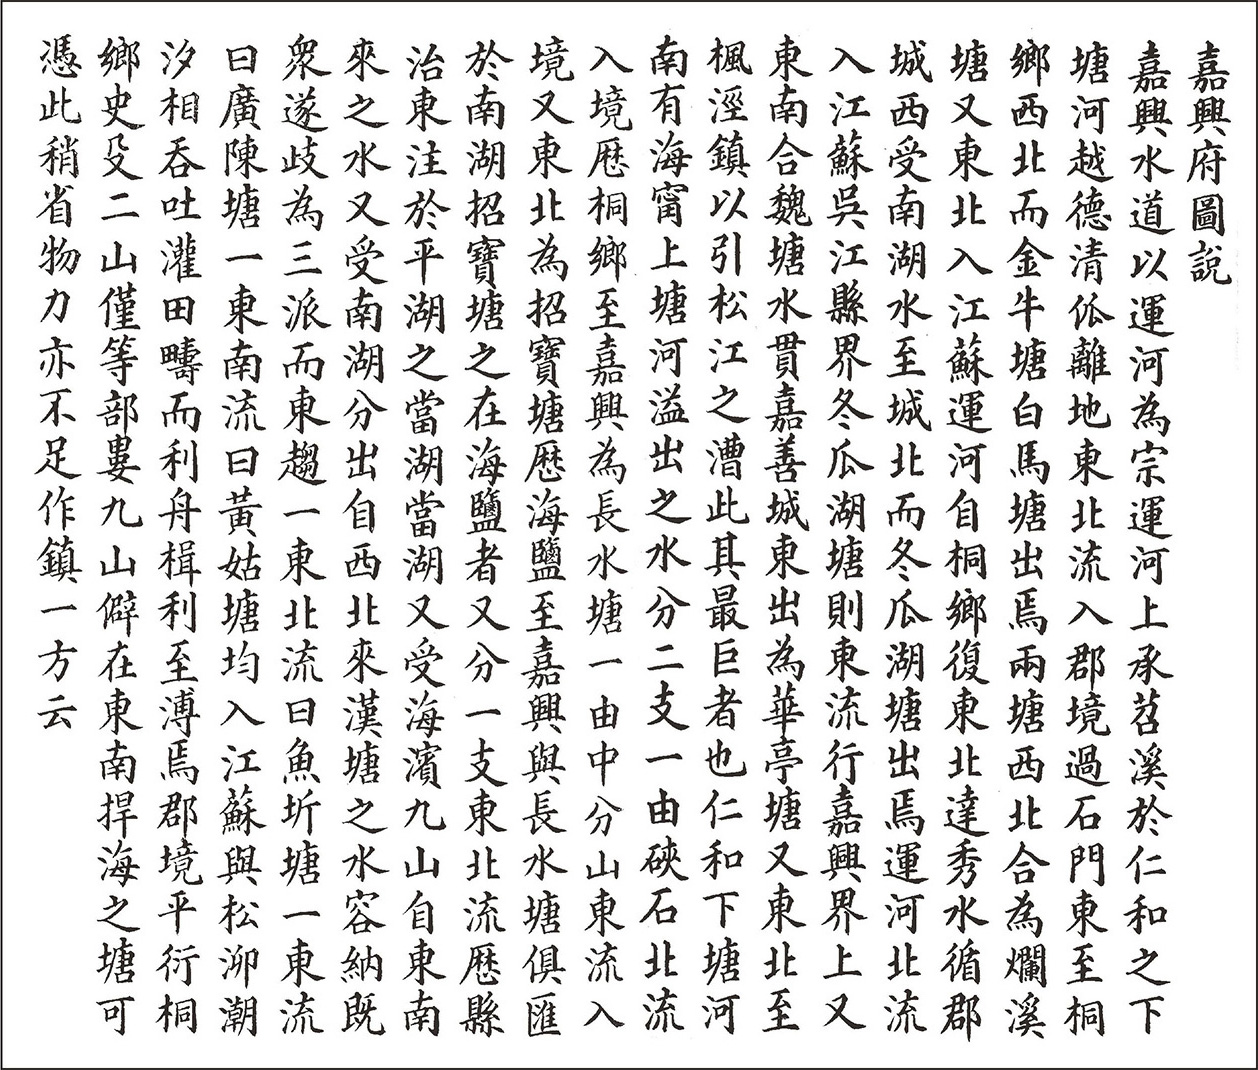 嘉興府圖說
嘉興水道以運河為宗運河上承苕溪於仁和之下
塘河越德清仳離地東北流入郡境過石門東至桐
鄉西北而金牛塘白馬塘出焉兩塘西北合為爛溪
塘又東北入江蘇運河自桐鄉復東北達秀水循郡
城西受南湖水至城北而冬瓜湖塘出焉運河北流
入江蘇吳江縣界冬瓜湖塘則東流行嘉興界上又
東南合魏塘水貫嘉善城東出為華亭塘又東北至
楓涇鎮以引松江之漕此其最巨者也仁和下塘河
南有海甯上塘河溢出之水分二支一由硤石北流
入境歷桐鄉至嘉興為長水塘一由中分山東流入
境又東北為招寶塘歷海鹽至嘉興與長水塘俱匯
於南湖招寶塘之在海鹽者又分一支東北流歷縣
治東注於平湖之當湖當湖又受海濱九山自東南
來之水又受南湖分出自西北來漢塘之水容納既
眾遂歧為三派而東趨一東北流曰魚圻塘一東流
曰廣陳塘一東南流曰黃姑塘均入江蘇與松泖潮
汐相吞吐灌田疇而利舟楫利至溥焉郡境平衍桐
鄉史殳二山僅等部婁九山僻在東南捍海之塘可
憑此稍省物力亦不足作鎮一方云